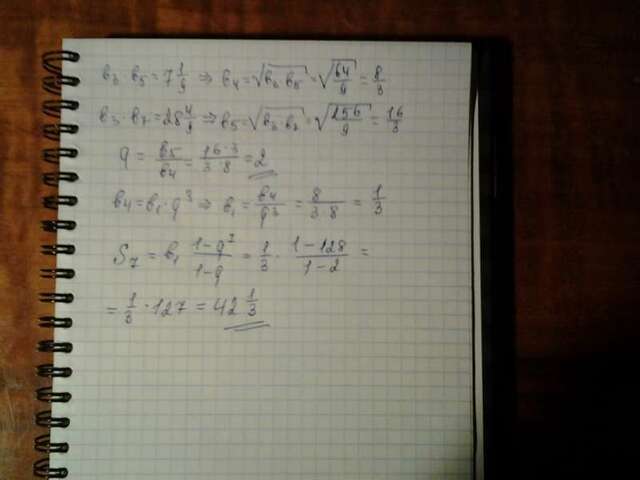 b₃·b₅=7 1/9 ⇒ b₄=√(b₃ b₅)=√(64/9)=8/3
b₃·b₇=28 4/9 ⇒ b₅=√(b₃ b₇)=√(256/9)=16/3
q = b₅/b₄ = 16·3/3·8 = 2
b₄=b₁·q³ ⇒ b₁=b₄/q³ = 8/3·8 = 1/3
S₇ = b₁ (1-q⁷)/(1-q) = 1/3 · (1-128)/(1-2) =
= 1/3 · 127 = 42 1/3